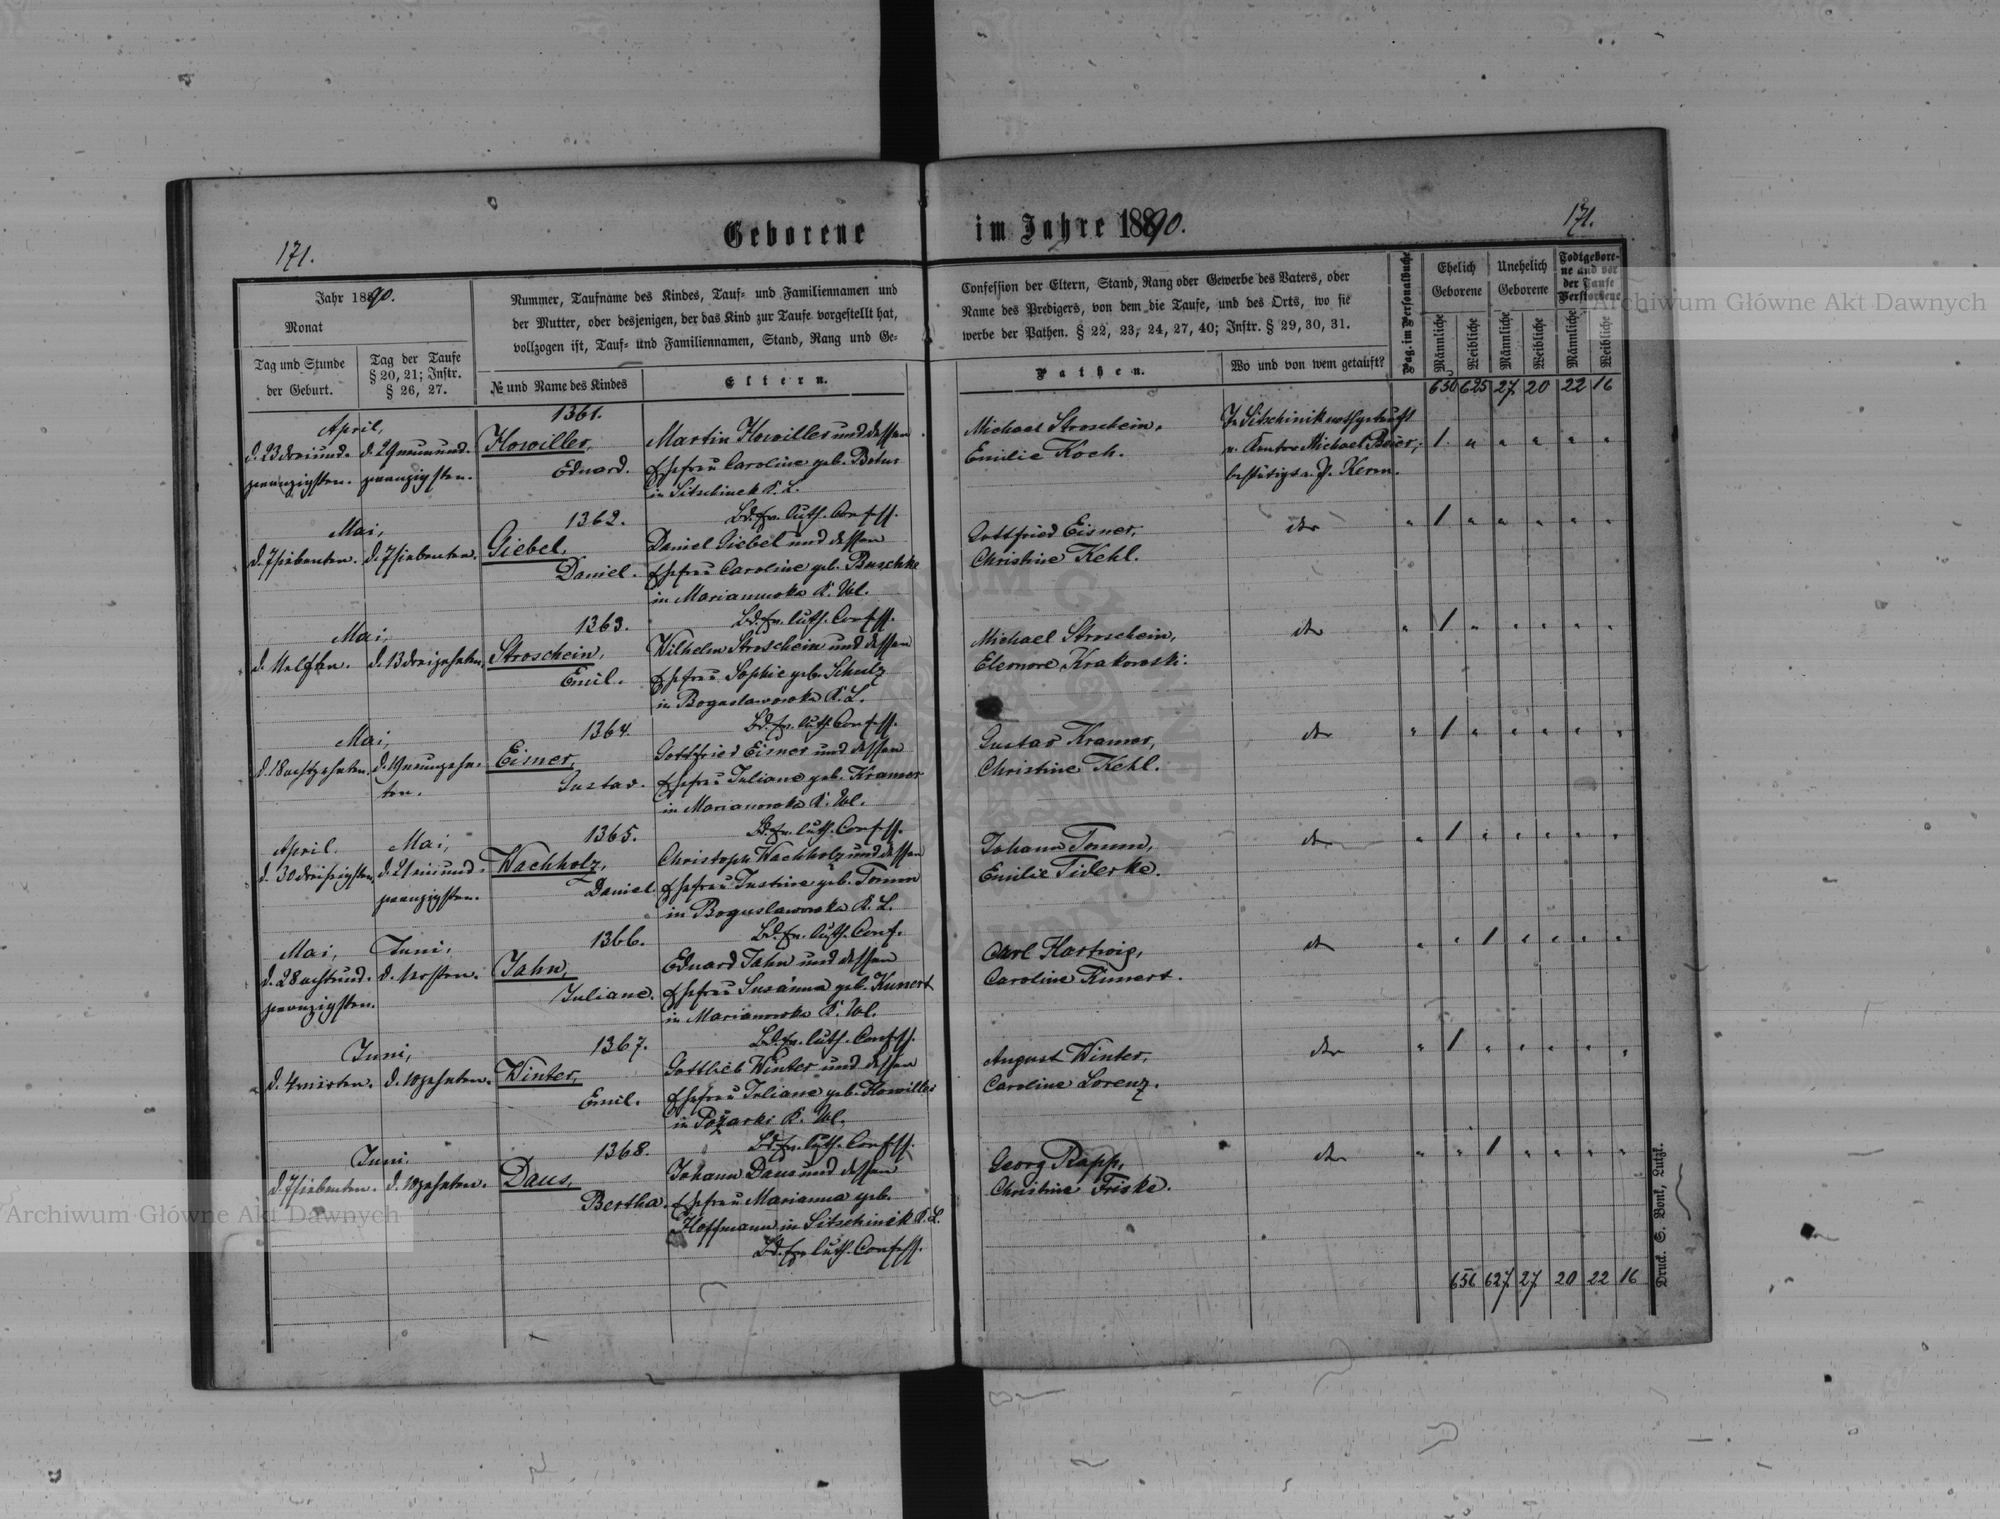 171.
Geborene im Jahre 1890.
171.
Jahr 1890.
Monat
Tag und Stunde
der Geburt.
Tag der Taufe
§ 20, 21; Instr.
§ 26, 27.
Nummer, Taufname des Kindes, Tauf- und Familiennamen und
der Mutter, oder desjenigen, der das Kind zur Taufe vorgestellt hat,
vollzogen ist, Tauf- und Familiennamen, Stand, Rang und Ge-
№ und Name des Kindes
Eltern.
Confession der Eltern, Stand, Rang oder Gewerbe des Vaters, oder
Name des Predigers, von dem die Taufe, und des Orts, wo sie
werbe der Pathen. § 22, 23, 24, 27, 40; Instr. § 29, 30, 31.
Pathen.
Wo und von wem getauft?
Pag. im Personalbuche
Ehelich
Geborene
Unehelich
Geborene
Todtgebore-
ne und vor
der Taufe
Verstorbene
Männliche
Weibliche
Männliche
Weibliche
Männliche
Weibliche
650 625 27 20 22 16
April,
d. 23 dreiund-
zwanzigsten.
d. 29 neunund-
zwanzigsten.
1361.
Howiller,
Eduard.
Martin Howiller und dessen
Ehefrau Caroline geb.
in Sitschinek K. L.
Bd. ev. luth. Confess.
Michael Stroschein,
Emilie Koch.
In Sitschinik nothgetauft
v. Kantor Michael Beier,
bestätigt v. P. Kerm.
1 " " " " "
Mai,
d. 7 siebenten.
d. 7 siebenten.
1362.
Giebel,
Daniel.
Daniel Giebel und dessen
Ehefrau Caroline geb. Buschke
in Marianowka K. Wl.
Bd. ev. luth. Confess.
Gottfried Eisner,
Christine Kehl.
" 1 " " " " "
Mai,
d. 11 elften.
d. 13 dreizehnten.
1363.
Stroschein,
Emil.
Wilhelm Stroschein und dessen
Ehefrau Sophie geb. Schulz
in Boguslawowka K. L.
Bd. ev. luth. Confess.
Michael Stroschein,
Eleonore Krakowski.
" 1 " " " " "
Mai,
d. 18 achtzehnten.
d. 19 neunzehn-
ten.
1364.
Eisner,
Gustav.
Gottfried Eisner und dessen
Ehefrau Juliane geb. Kramer
in Marianowka K. Wl.
Bd. ev. luth. Confess.
Gustav Kramer,
Christine Kehl.
" 1 " " " " "
April.
d. 30 dreißigsten.
Mai,
d. 21 einund-
zwanzigsten.
1365.
Wachholz,
Daniel.
Christoph Wachholz und dessen
Ehefrau Justine geb. Tomm
in Boguslawowka K. L.
Bd. ev. luth. Conf.
Johann Tomm,
Emilie Tiderke.
" 1 " " " " "
Mai,
d. 28 achtund-
zwanzigsten.
Juni,
d. 1 ersten.
1366.
Jahn,
Juliane.
Eduard Jahn und dessen
Ehefrau Susanna geb. Kunert
in Marianowka K. Wl.
Bd. ev. luth. Confess.
Carl Hartwig,
Caroline Kunert.
" " 1 " " " "
Juni,
d. 4 vierten.
d. 10 zehnten.
1367.
Winter,
Emil.
Gottlieb Winter und dessen
Ehefrau Juliane geb. Howiller
in Pożarki K. Wl.
Bd. ev. luth. Confess.
August Winter,
Caroline Lorenz.
" 1 " " " " "
Juni.
d. 7 siebenten.
d. 10 zehnten.
1368.
Daus,
Bertha.
Johann Daus und dessen
Ehefrau Marianna geb.
Hoffmann in Sitschinik K. L.
Bd. ev. luth. Confess.
Georg Rapp,
Christine Friske.
" " 1 " " " "
656 627 27 20 22 16
Druck. S. Bont, Lutzk.
Archiwum Główne Akt Dawnych
Archiwum Główne Akt Dawnych